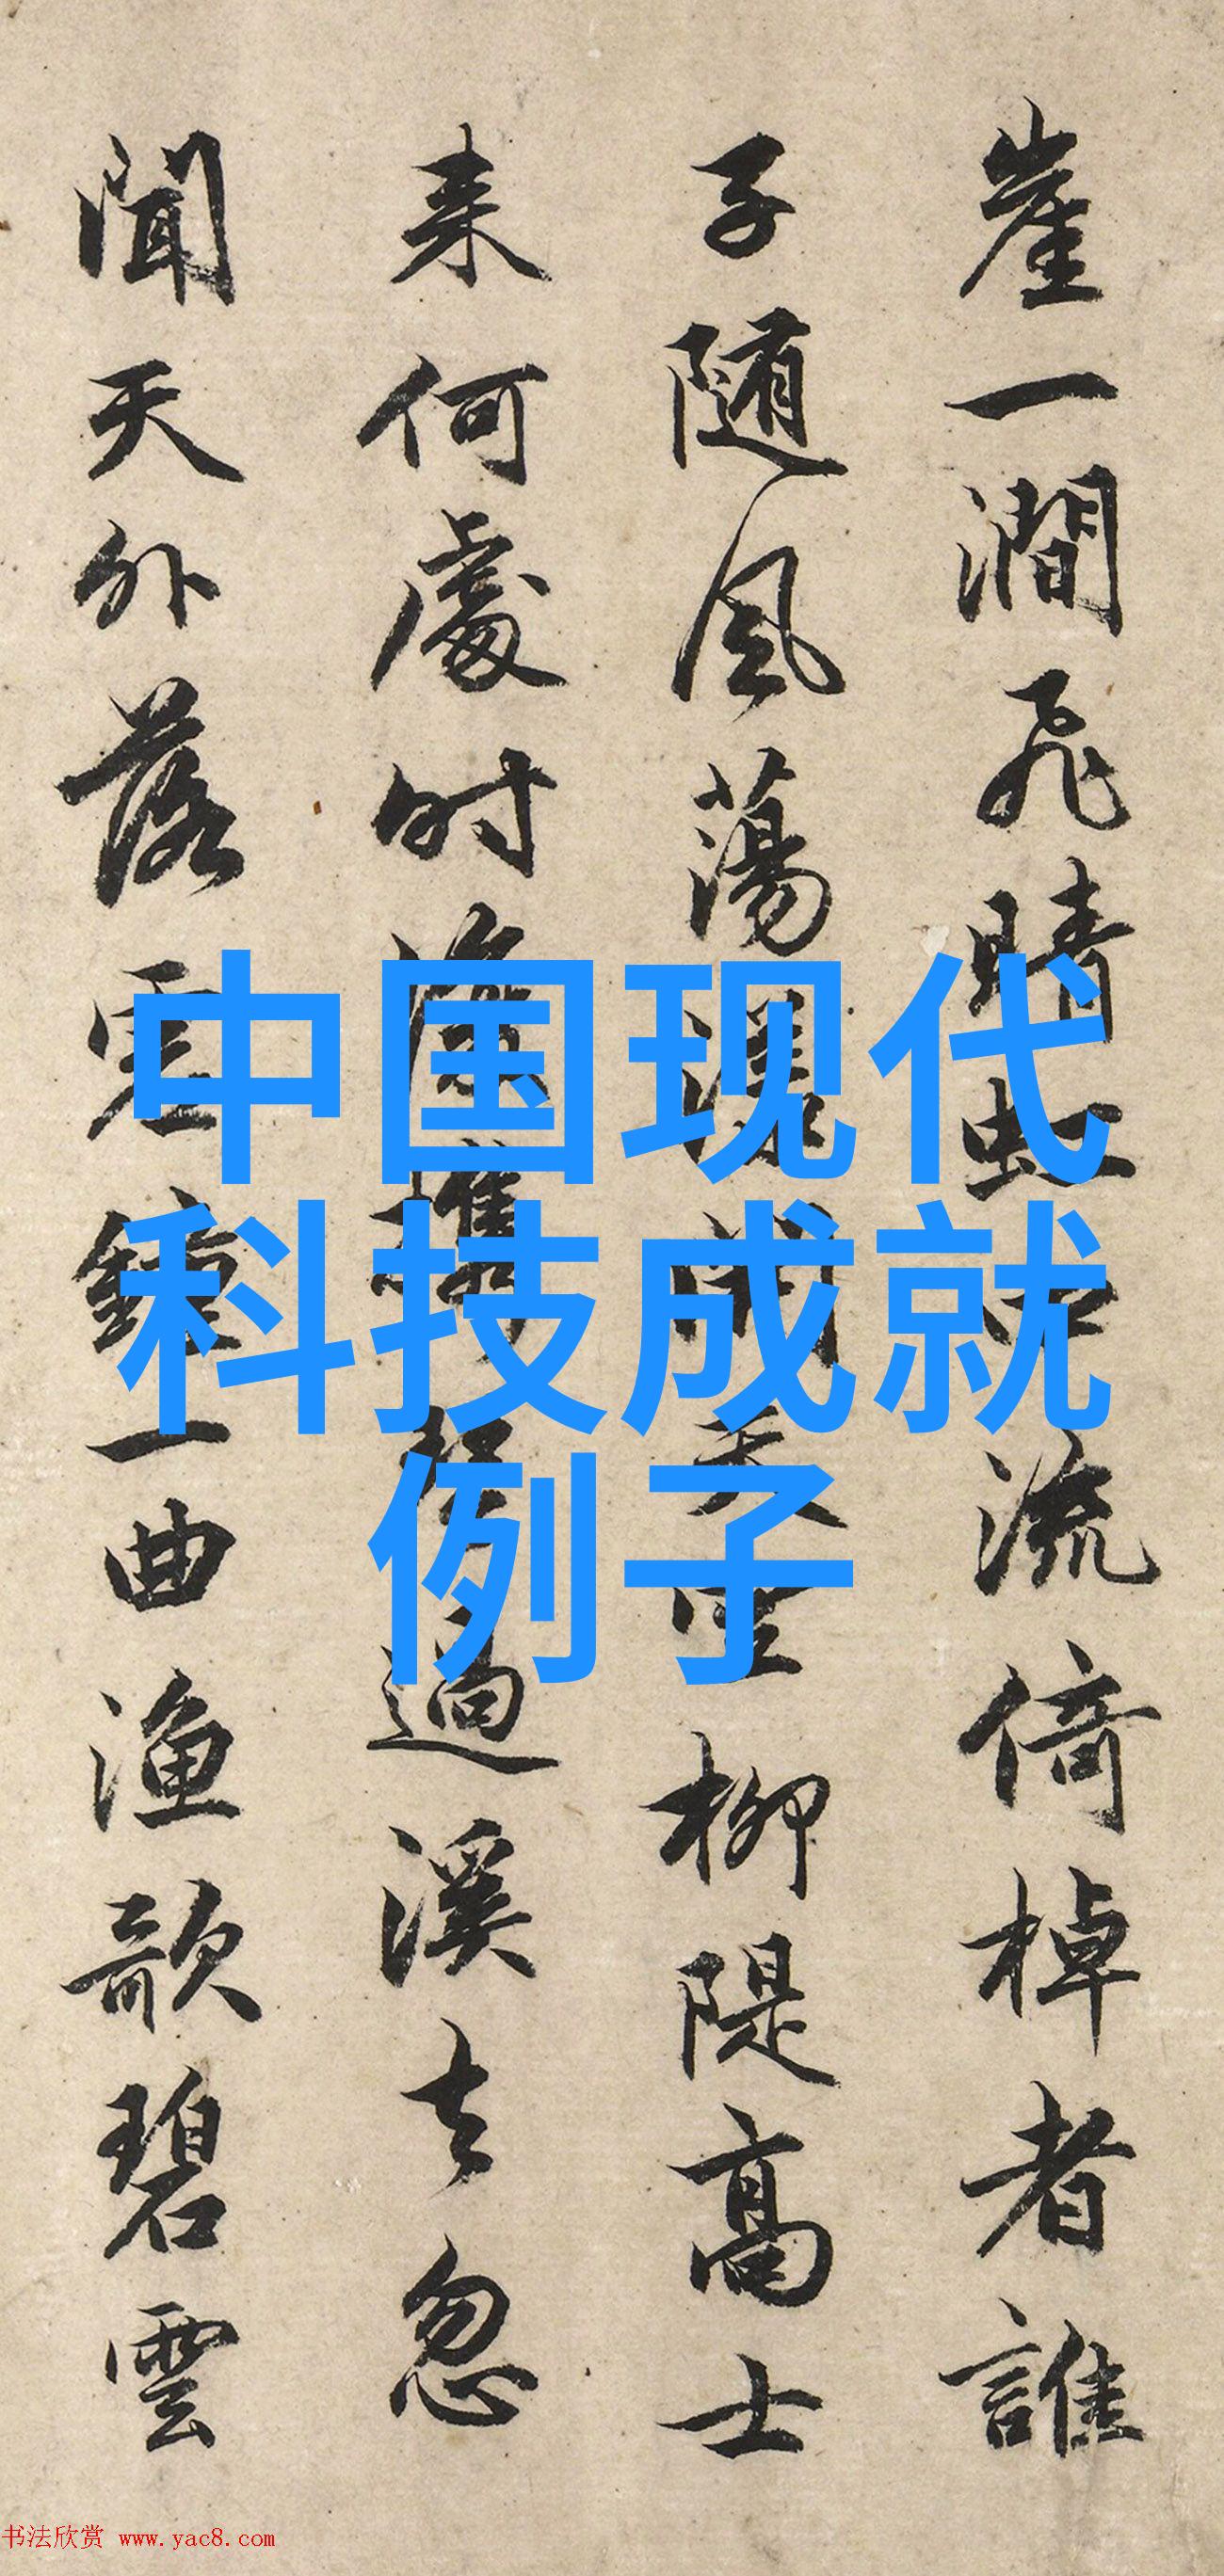 崖一澗飛晴虹中流倚棹者誰
子随風蕩漾坐柳隄高士
来何處時攜琴過溪去忽
聞天外落鐘一曲漁歌碧雲
中国现代
科技成就
例子
书法欣赏 www.yac8.com